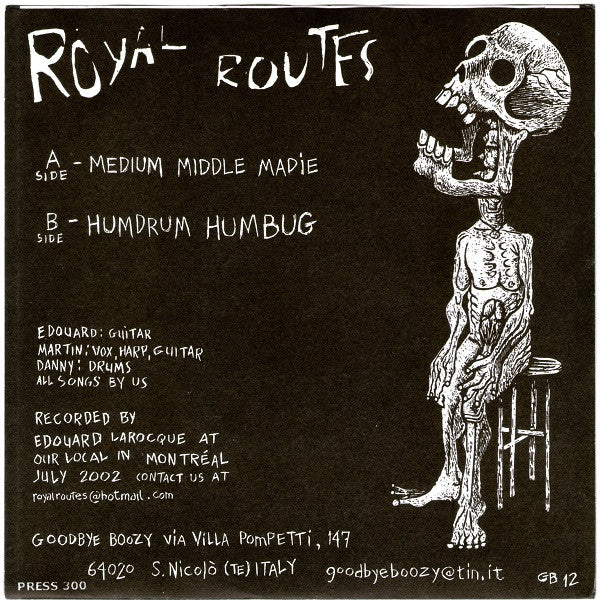 ROYAL ROUTES
A SIDE - MEDIUM MIDDLE MADIE
B SIDE - HUMDRUM HUMBUG
EDOUARD: GUITAR
MARTIN: VOX, HARP, GUITAR
DANNY: DRUMS
ALL SONGS BY US
RECORDED BY
EDOUARD LAROCQUE AT
OUR LOCAL IN MONTRÉAL
JULY 2002 CONTACT US AT
royalroutes@hotmail.com
GOODBYE BOOZY VIA VILLA POMPETTI, 147
64020 S. NICOLÒ (TE) ITALY goodbyeboozy@tin.it
PRESS 300
GB 12